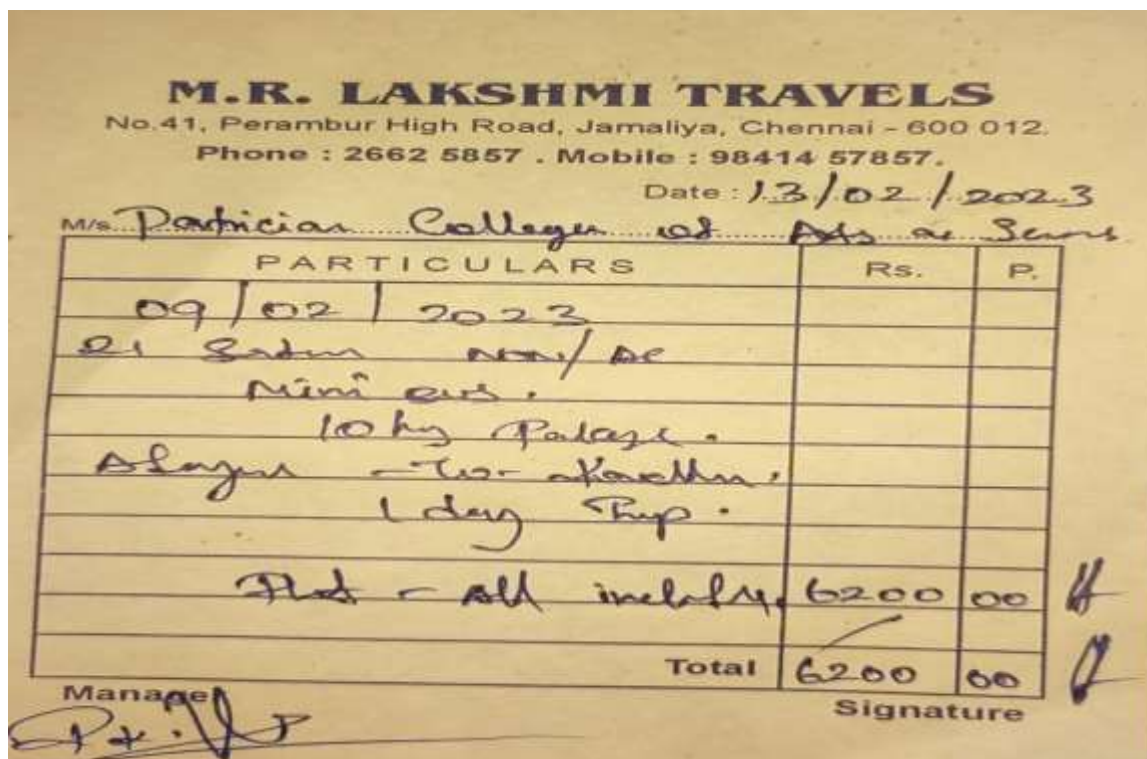 M.R. LAKSHMI TRAVELS
No.41, Perambur High Road, Jamaliya, Chennai - 600 012.
Phone : 2662 5857 . Mobile : 98414 57857.
Date : 13/02/2023
M/s. Patrician College of Arts
PARTICULARS Rs. P.
09/02/2023
21 Non/AC
Mini Bus.
10 hrs
-To-
1 day Trip.
- All 6200 00
Total 6200 00
Manager Signature